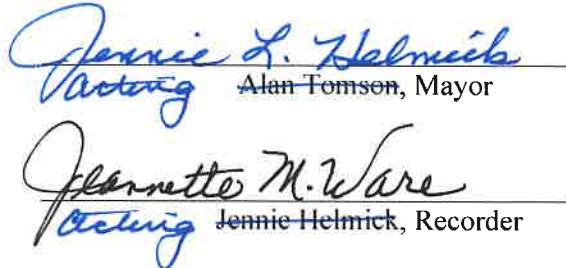 Jennie L. Helmick
Acting Alan Tomson, Mayor
Jeannette M. Ware
Acting Jennie Helmick, Recorder